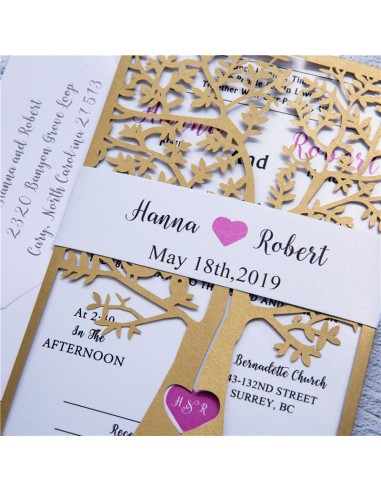 Hanna and Robert
2320 Banyon Grove Loop
Cary, North Carolina 27513
Together
Robert
and
Hanna Robert
May 18th,2019
At 2:30
In The
AFTERNOON
Bernadette Church
43-132ND STREET
SURREY, BC
H & R